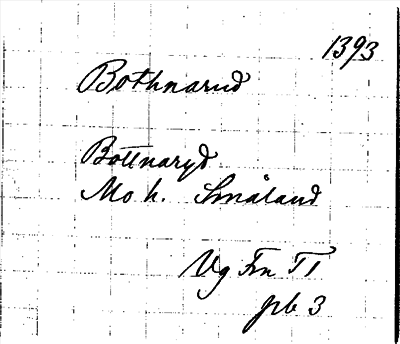 1393
Bothnarud
Bottnaryd
Mo h. Småland
Vg Frn T1
pb 3